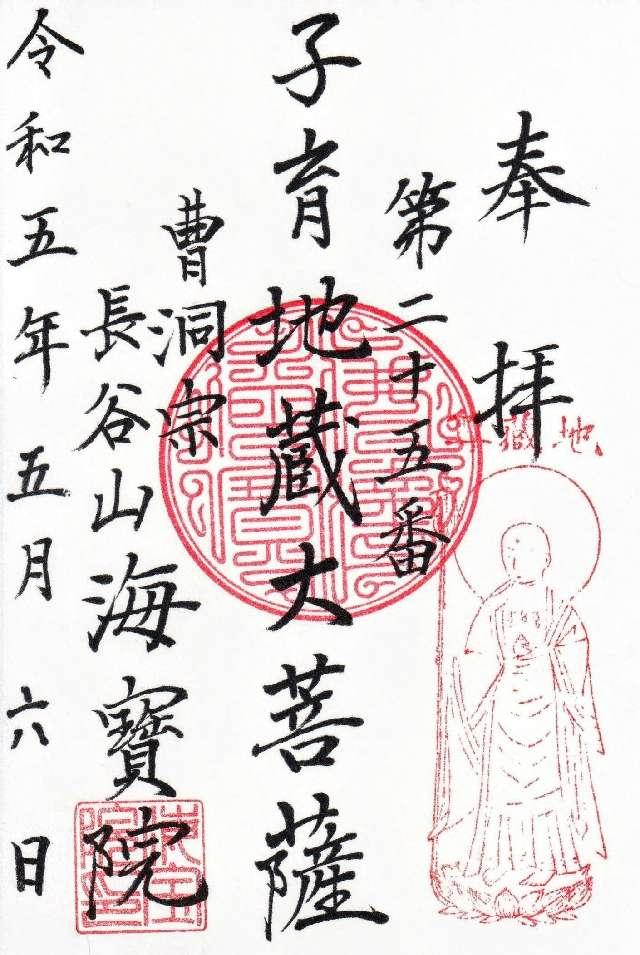 奉拝
第二十五番
子育地蔵大菩薩
曹洞宗
長谷山海寳院
令和五年五月六日